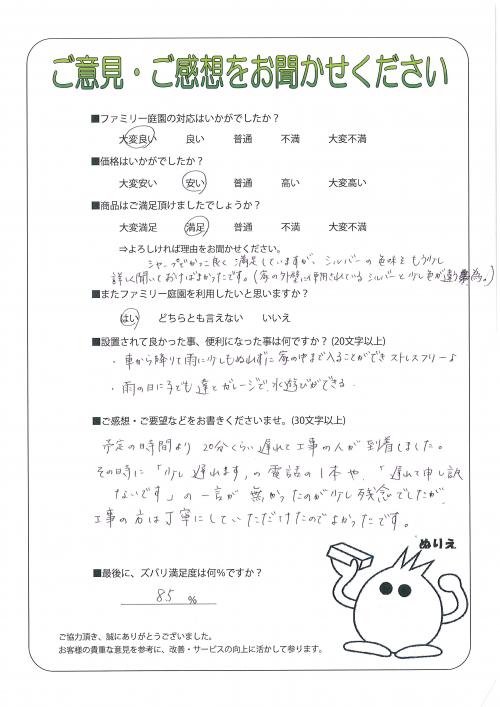 ご意見・ご感想をお聞かせください
■ファミリー庭園の対応はいかがでしたか？
大変良い 良い 普通 不満 大変不満
■価格はいかがでしたか？
大変安い 安い 普通 高い 大変高い
■商品はご満足頂けましたでしょうか？
大変満足 満足 普通 不満 大変不満
⇒よろしければ理由をお聞かせください。
シャープでかっこ良く満足していますが、シルバーの色味をもう少し
詳しく聞いておけばよかったです。(家の外壁に使用されているシルバーと少し色が違う為。)
■またファミリー庭園を利用したいと思いますか？
はい どちらとも言えない いいえ
■設置されて良かった事、便利になった事は何ですか？(20文字以上)
・車から降りて雨に少しもぬれずに家の中まで入ることができストレスフリーよ
・雨の日に子ども達とガレージで水遊びができる
■ご感想・ご要望などをお書きくださいませ。(30文字以上)
予定の時間より20分くらい遅れて工事の人が到着しました。
その時に「少し遅れます」の電話の1本や、「遅れて申し訳
ないです」の一言が無かったのが少し残念でしたが、
工事の方は丁寧にしていただけたのでよかったです。
ぬりえ
■最後に、ズバリ満足度は何％ですか？
85 %
ご協力頂き、誠にありがとうございました。
お客様の貴重な意見を参考に、改善・サービスの向上に活かして参ります。